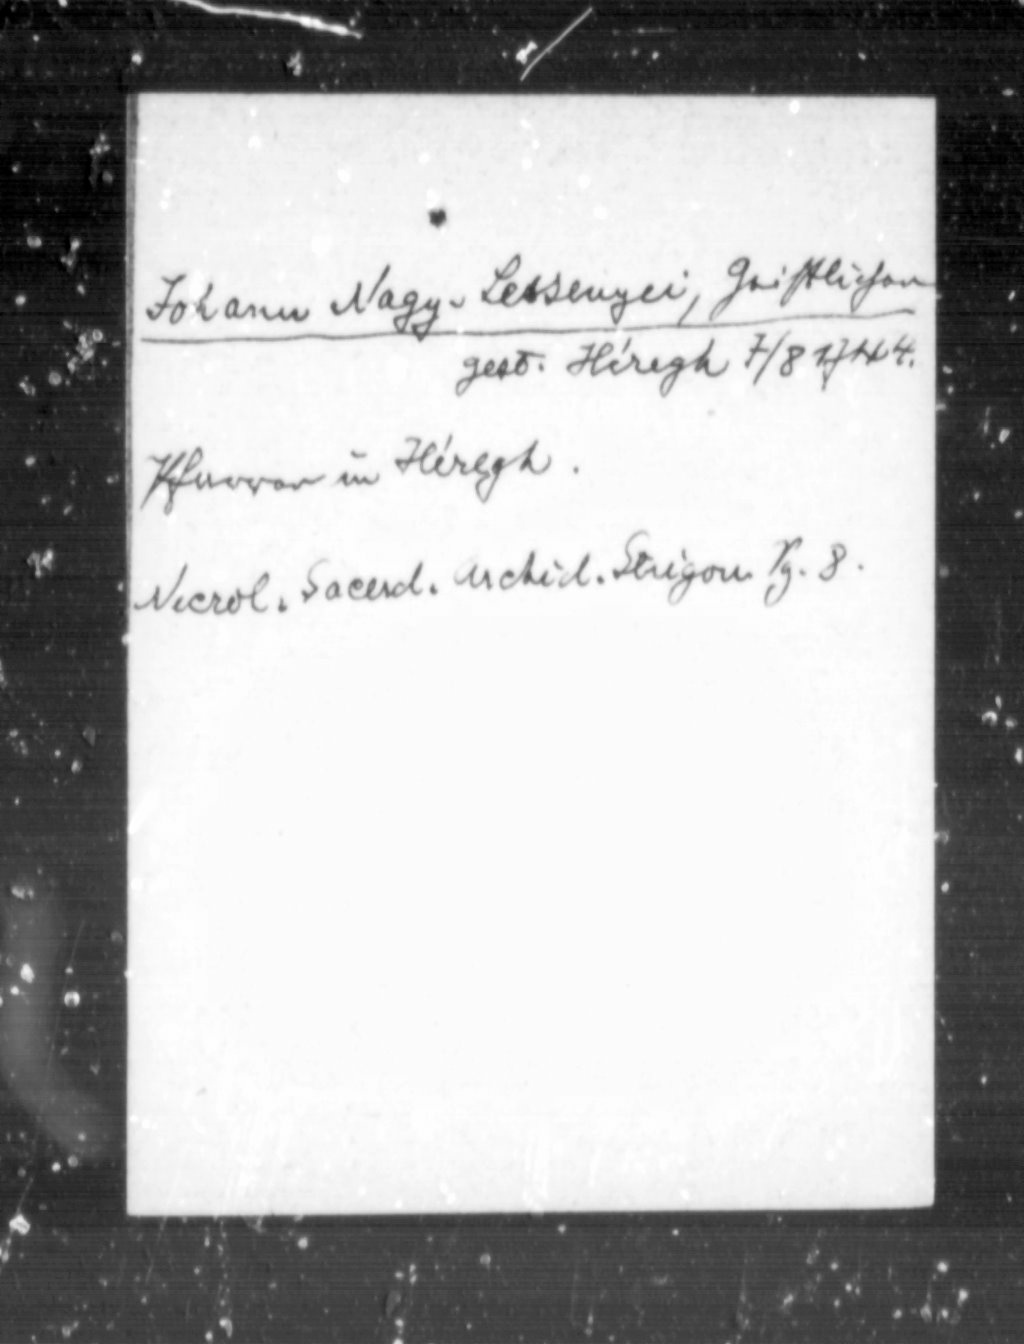 Johann Nagy-Lessenyei, Geistlicher
gest. Héregh 7/8 1744.
Pfarrer in Héregh.
Necrol. Sacerd. Archid. Strigon. Pg. 8.